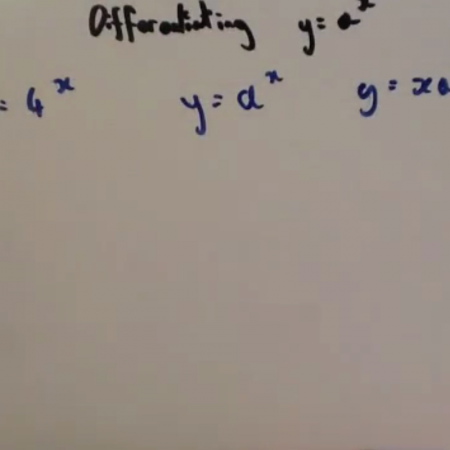 Differentiating y = a^x
= 4^x y = a^x y = x